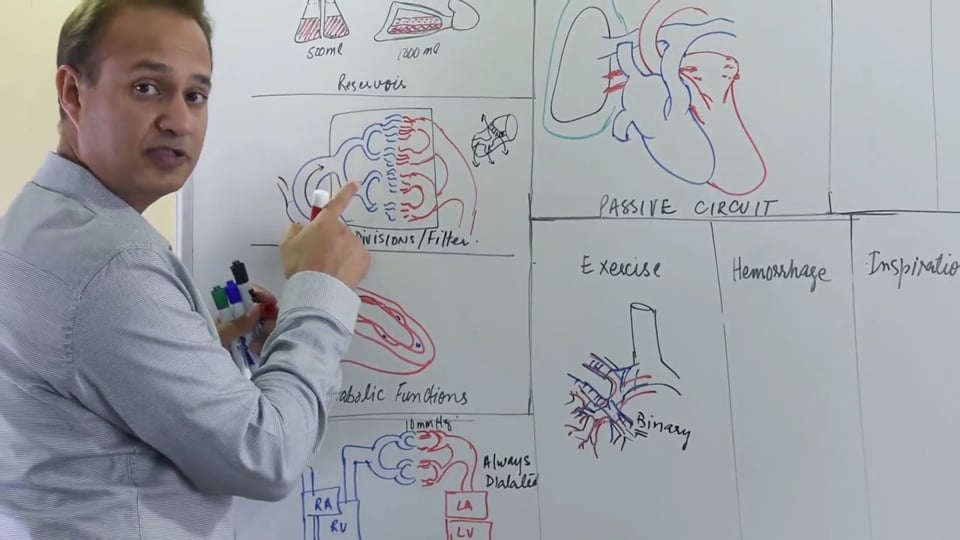 500ml
1000 ml
Reservoir
Divisions/Filter.
abolic Functions
10mmHg
Always
Dialated
RA
RV
LA
LV
PASSIVE CIRCUIT
Exercise
Hemorrhage
Inspiratio
Binary